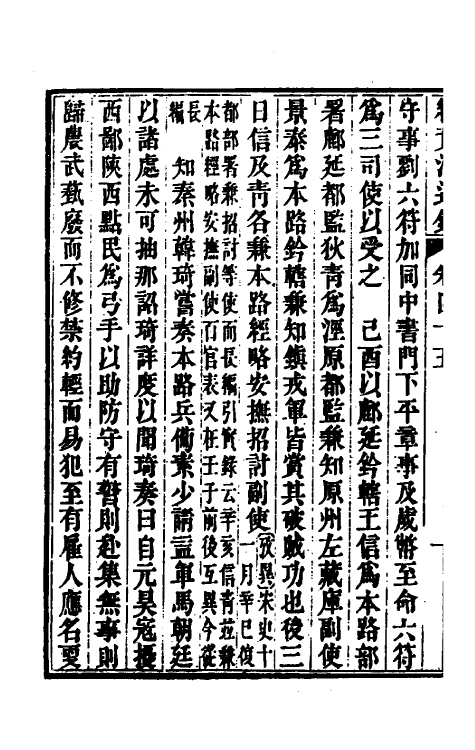 守事劉六符加同中書門下平章事及歲幣至命六符
爲三司使以受之　己酉以鄜延鈐轄王信爲本路部
署鄜延都監狄青爲涇原都監兼知原州左藏庫副使
景泰爲本路鈐轄兼知鎮戎軍皆賞其破賊功也後三
日信及青各兼本路經略安撫招討副使攷異宋史十一月辛巳復
都部署兼招討等使而長編引實錄云辛亥信青並兼
本路經略安撫副使百官表又在壬子前後互異今從
長編　知秦州韓琦嘗奏本路兵備素少請益軍馬朝廷
以諸處未可抽那詔琦詳度以聞琦奏曰自元昊寇擾
西鄙陝西點民爲弓手以助防守有警則赴集無事則
歸農武藝廢而不修禁約輕而易犯至有雇人應名更